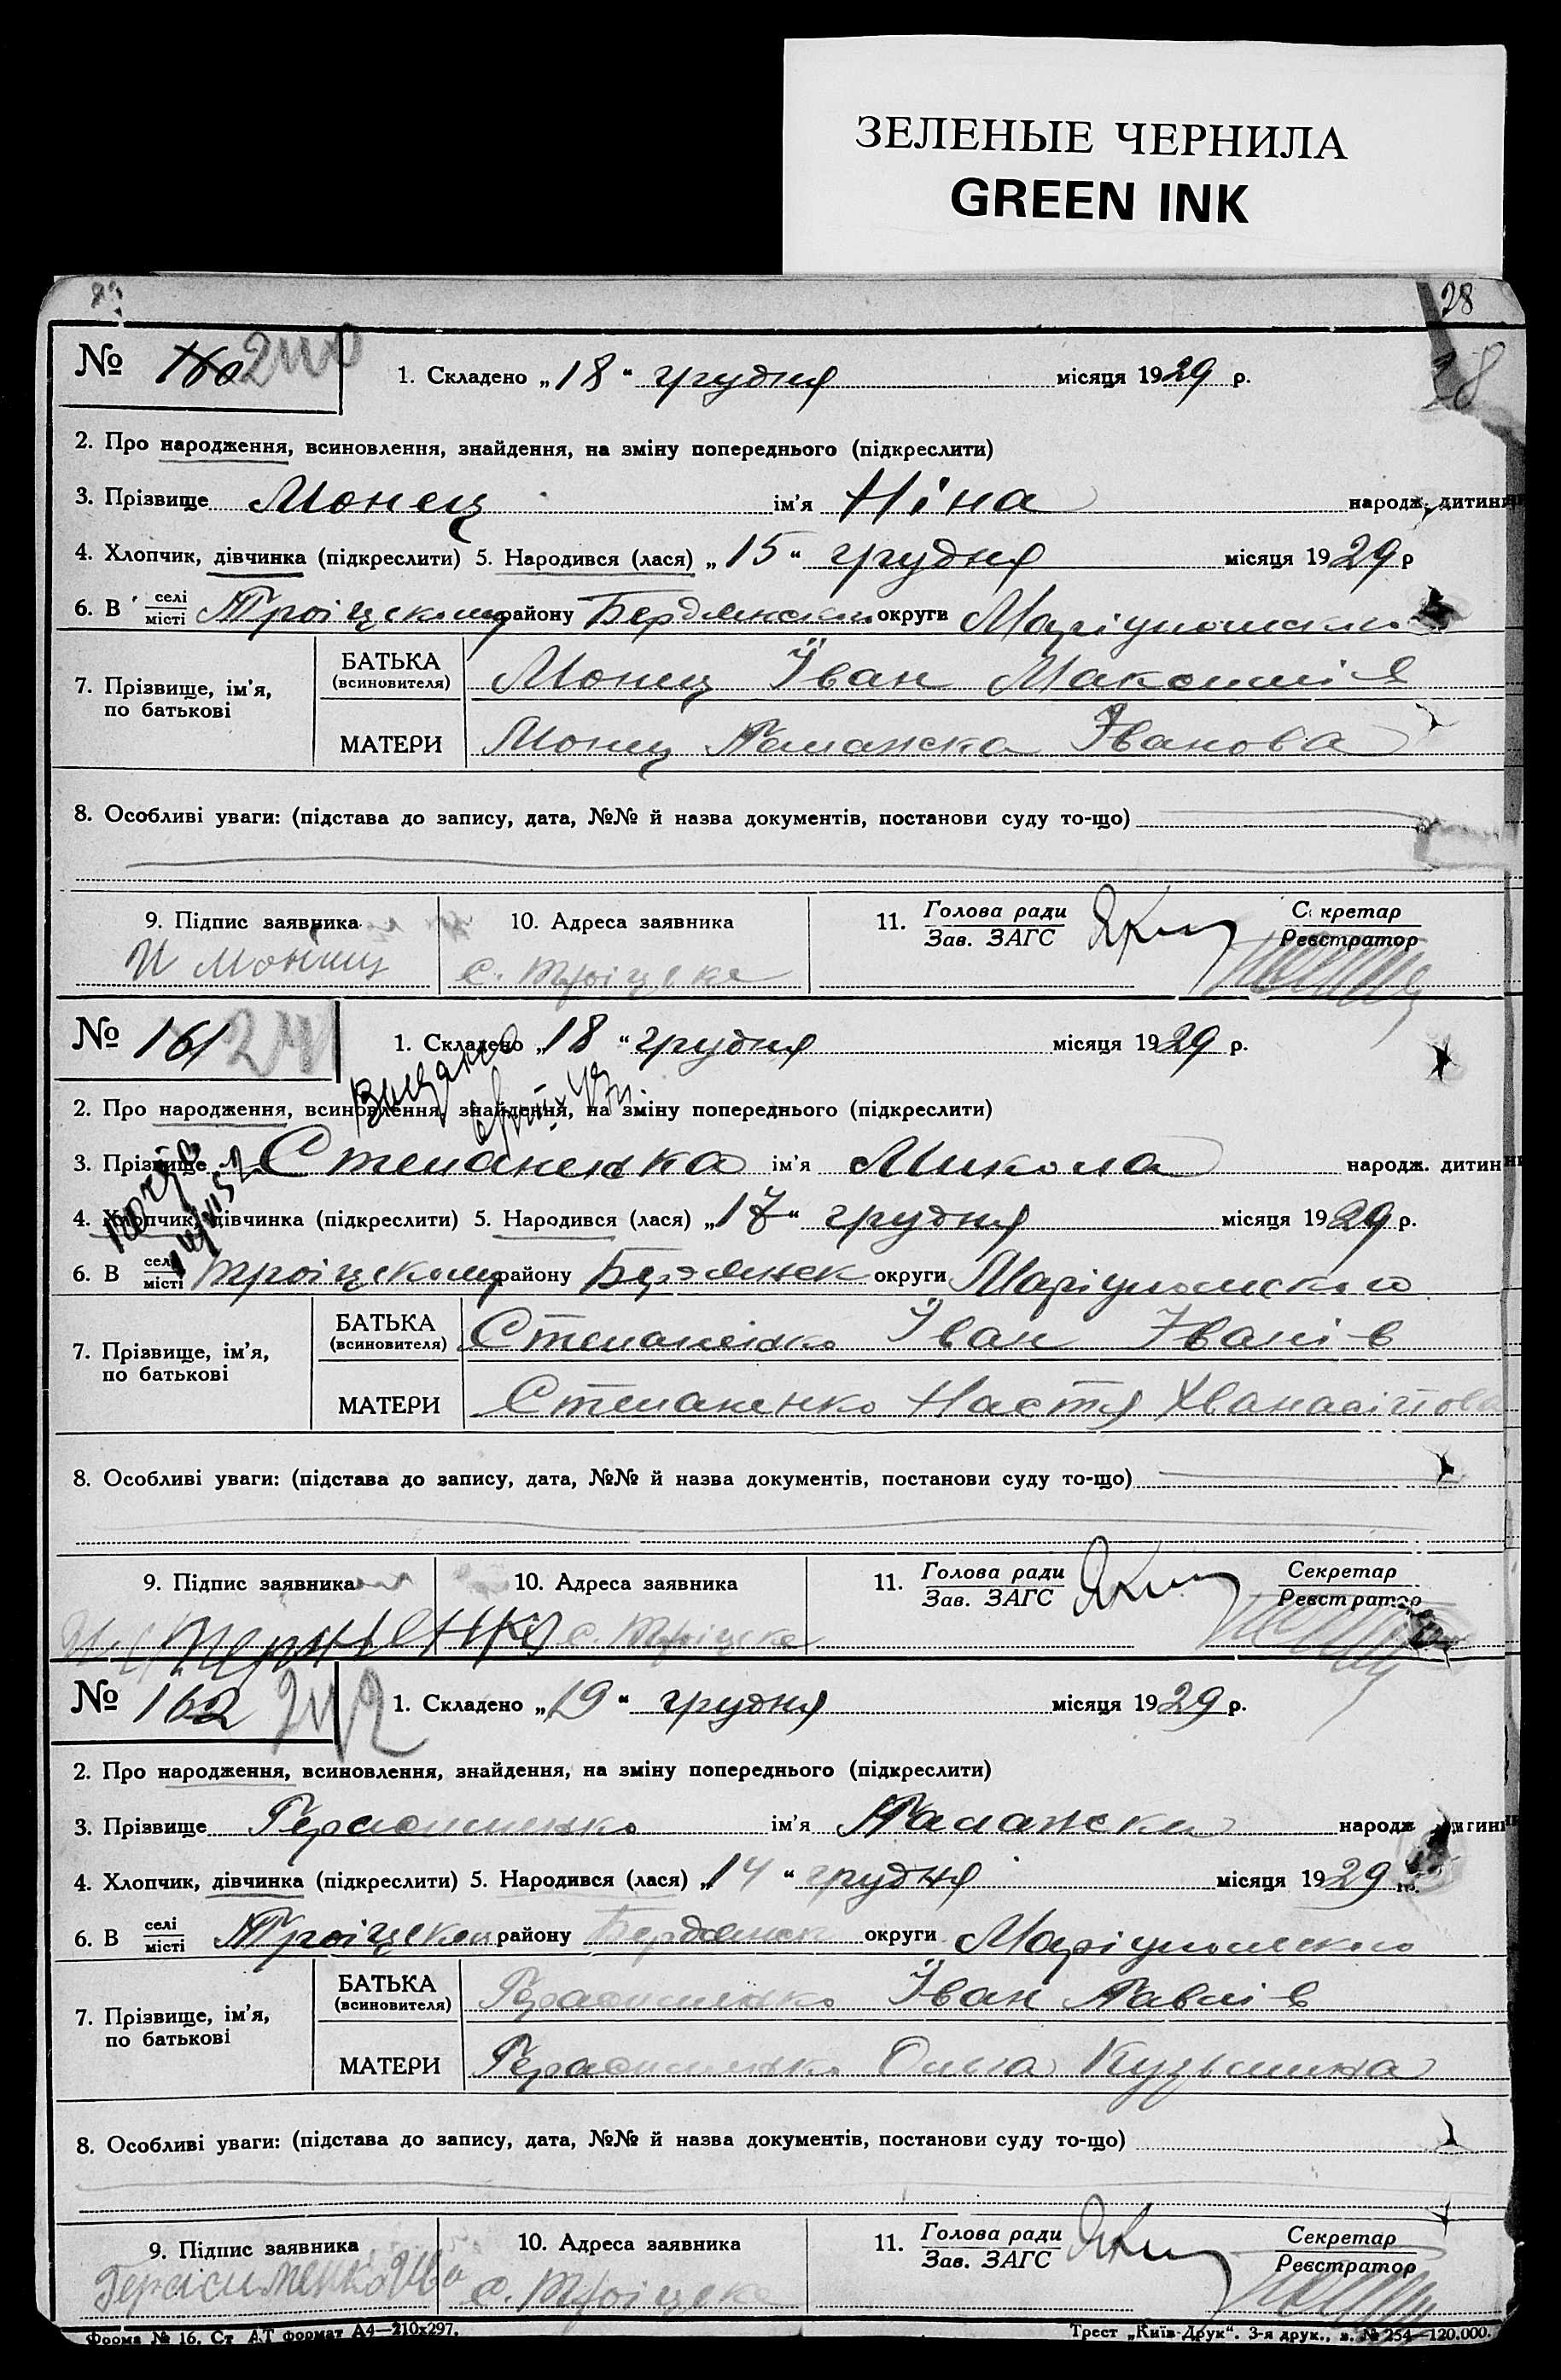 ЗЕЛЕНЫЕ ЧЕРНИЛА
GREEN INK
28
28
№ 160 240
1. Складено „18“ грудня місяця 1929 р.
2. Про народження, всиновлення, знайдення, на зміну попереднього (підкреслити)
3. Прізвище Монец ім'я Ніна народж. дитини
4. Хлопчик, дівчинка (підкреслити) 5. Народився (лася) „15“ грудня місяця 1929 р
6. В селі місті Троіцкому району Бердянском округи Маріупольского
7. Прізвище, ім'я, по батькові
БАТЬКА (всиновителя) Монец Іван Максимів
МАТЕРИ Монец Паланска Іванова
8. Особливі уваги: (підстава до запису, дата, №№ й назва документів, постанови суду то-що)
9. Підпис заявника 10. Адреса заявника 11. Голова ради Зав. ЗАГС Секретар Реєстратор
И Монець с. Троіцке
№ 161 241
1. Складено „18“ грудня місяця 1929 р.
2. Про народження, всиновлення, знайдення, на зміну попереднього (підкреслити)
3. Прізвище Степаненка ім'я Микола народж. дитини
4. Хлопчик, дівчинка (підкреслити) 5. Народився (лася) „17“ грудня місяця 1929 р.
6. В селі місті Троіцкому району Бердянск округи Маріупольского
7. Прізвище, ім'я, по батькові
БАТЬКА (всиновителя) Степаненко Іван Іванів
МАТЕРИ Степаненко Настя
8. Особливі уваги: (підстава до запису, дата, №№ й назва документів, постанови суду то-що)
9. Підпис заявника 10. Адреса заявника 11. Голова ради Зав. ЗАГС Секретар Реєстратор
с. Троіцке
№ 162 242
1. Складено „19“ грудня місяця 1929 р.
2. Про народження, всиновлення, знайдення, на зміну попереднього (підкреслити)
3. Прізвище Герасименко ім'я Паланска народж дитини
4. Хлопчик, дівчинка (підкреслити) 5. Народився (лася) „14“ грудня місяця 1929 р.
6. В селі місті Троіцком району Бердянск округи Маріупольского
7. Прізвище, ім'я, по батькові
БАТЬКА (всиновителя) Герасименко Іван Павлів
МАТЕРИ Герасименко Ольга Кузьмина
8. Особливі уваги: (підстава до запису, дата, №№ й назва документів, постанови суду то-що)
9. Підпис заявника 10. Адреса заявника 11. Голова ради Зав. ЗАГС Секретар Реєстратор
Герасименко Ива с. Троіцке
Форма № 16. Ст АТ формат А4—210х297.
Трест „Київ-Друк“. 3-я друк., з. № 254—120.000.